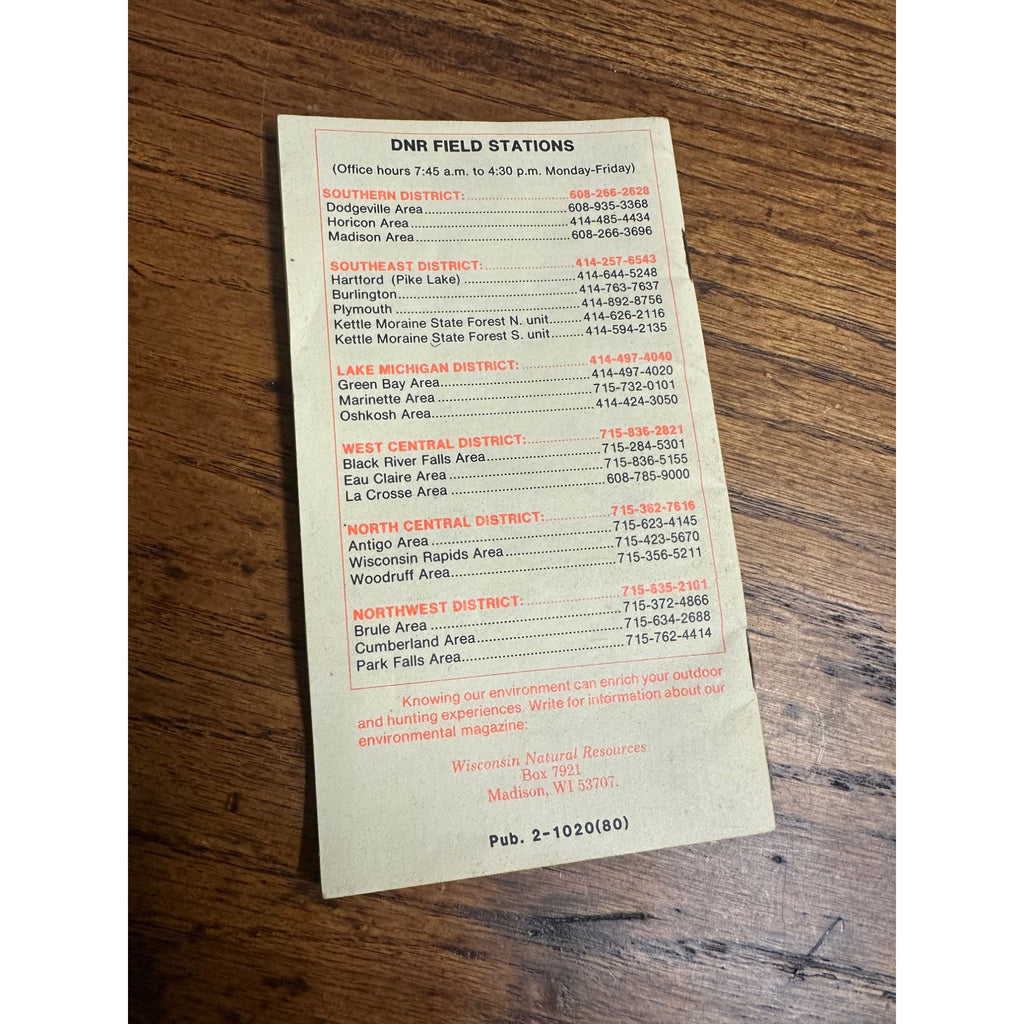 DNR FIELD STATIONS
(Office hours 7:45 a.m. to 4:30 p.m. Monday-Friday)
SOUTHERN DISTRICT:..........................608-266-2628
Dodgeville Area....................................608-935-3368
Horicon Area.......................................414-485-4434
Madison Area......................................608-266-3696
SOUTHEAST DISTRICT:......................414-257-6543
Hartford (Pike Lake) ............................414-644-5248
Burlington............................................414-763-7637
Plymouth .............................................414-892-8756
Kettle Moraine State Forest N. unit........414-626-2116
Kettle Moraine State Forest S. unit........414-594-2135
LAKE MICHIGAN DISTRICT:.................414-497-4040
Green Bay Area.....................................414-497-4020
Marinette Area......................................715-732-0101
Oshkosh Area.......................................414-424-3050
WEST CENTRAL DISTRICT:..................715-836-2821
Black River Falls Area............................715-284-5301
Eau Claire Area.....................................715-836-5155
La Crosse Area .....................................608-785-9000
NORTH CENTRAL DISTRICT:................715-362-7616
Antigo Area...........................................715-623-4145
Wisconsin Rapids Area..........................715-423-5670
Woodruff Area.......................................715-356-5211
NORTHWEST DISTRICT:.......................715-635-2101
Brule Area.............................................715-372-4866
Cumberland Area..................................715-634-2688
Park Falls Area......................................715-762-4414
Knowing our environment can enrich your outdoor
and hunting experiences. Write for information about our
environmental magazine:
Wisconsin Natural Resources
Box 7921
Madison, WI 53707.
Pub. 2-1020(80)